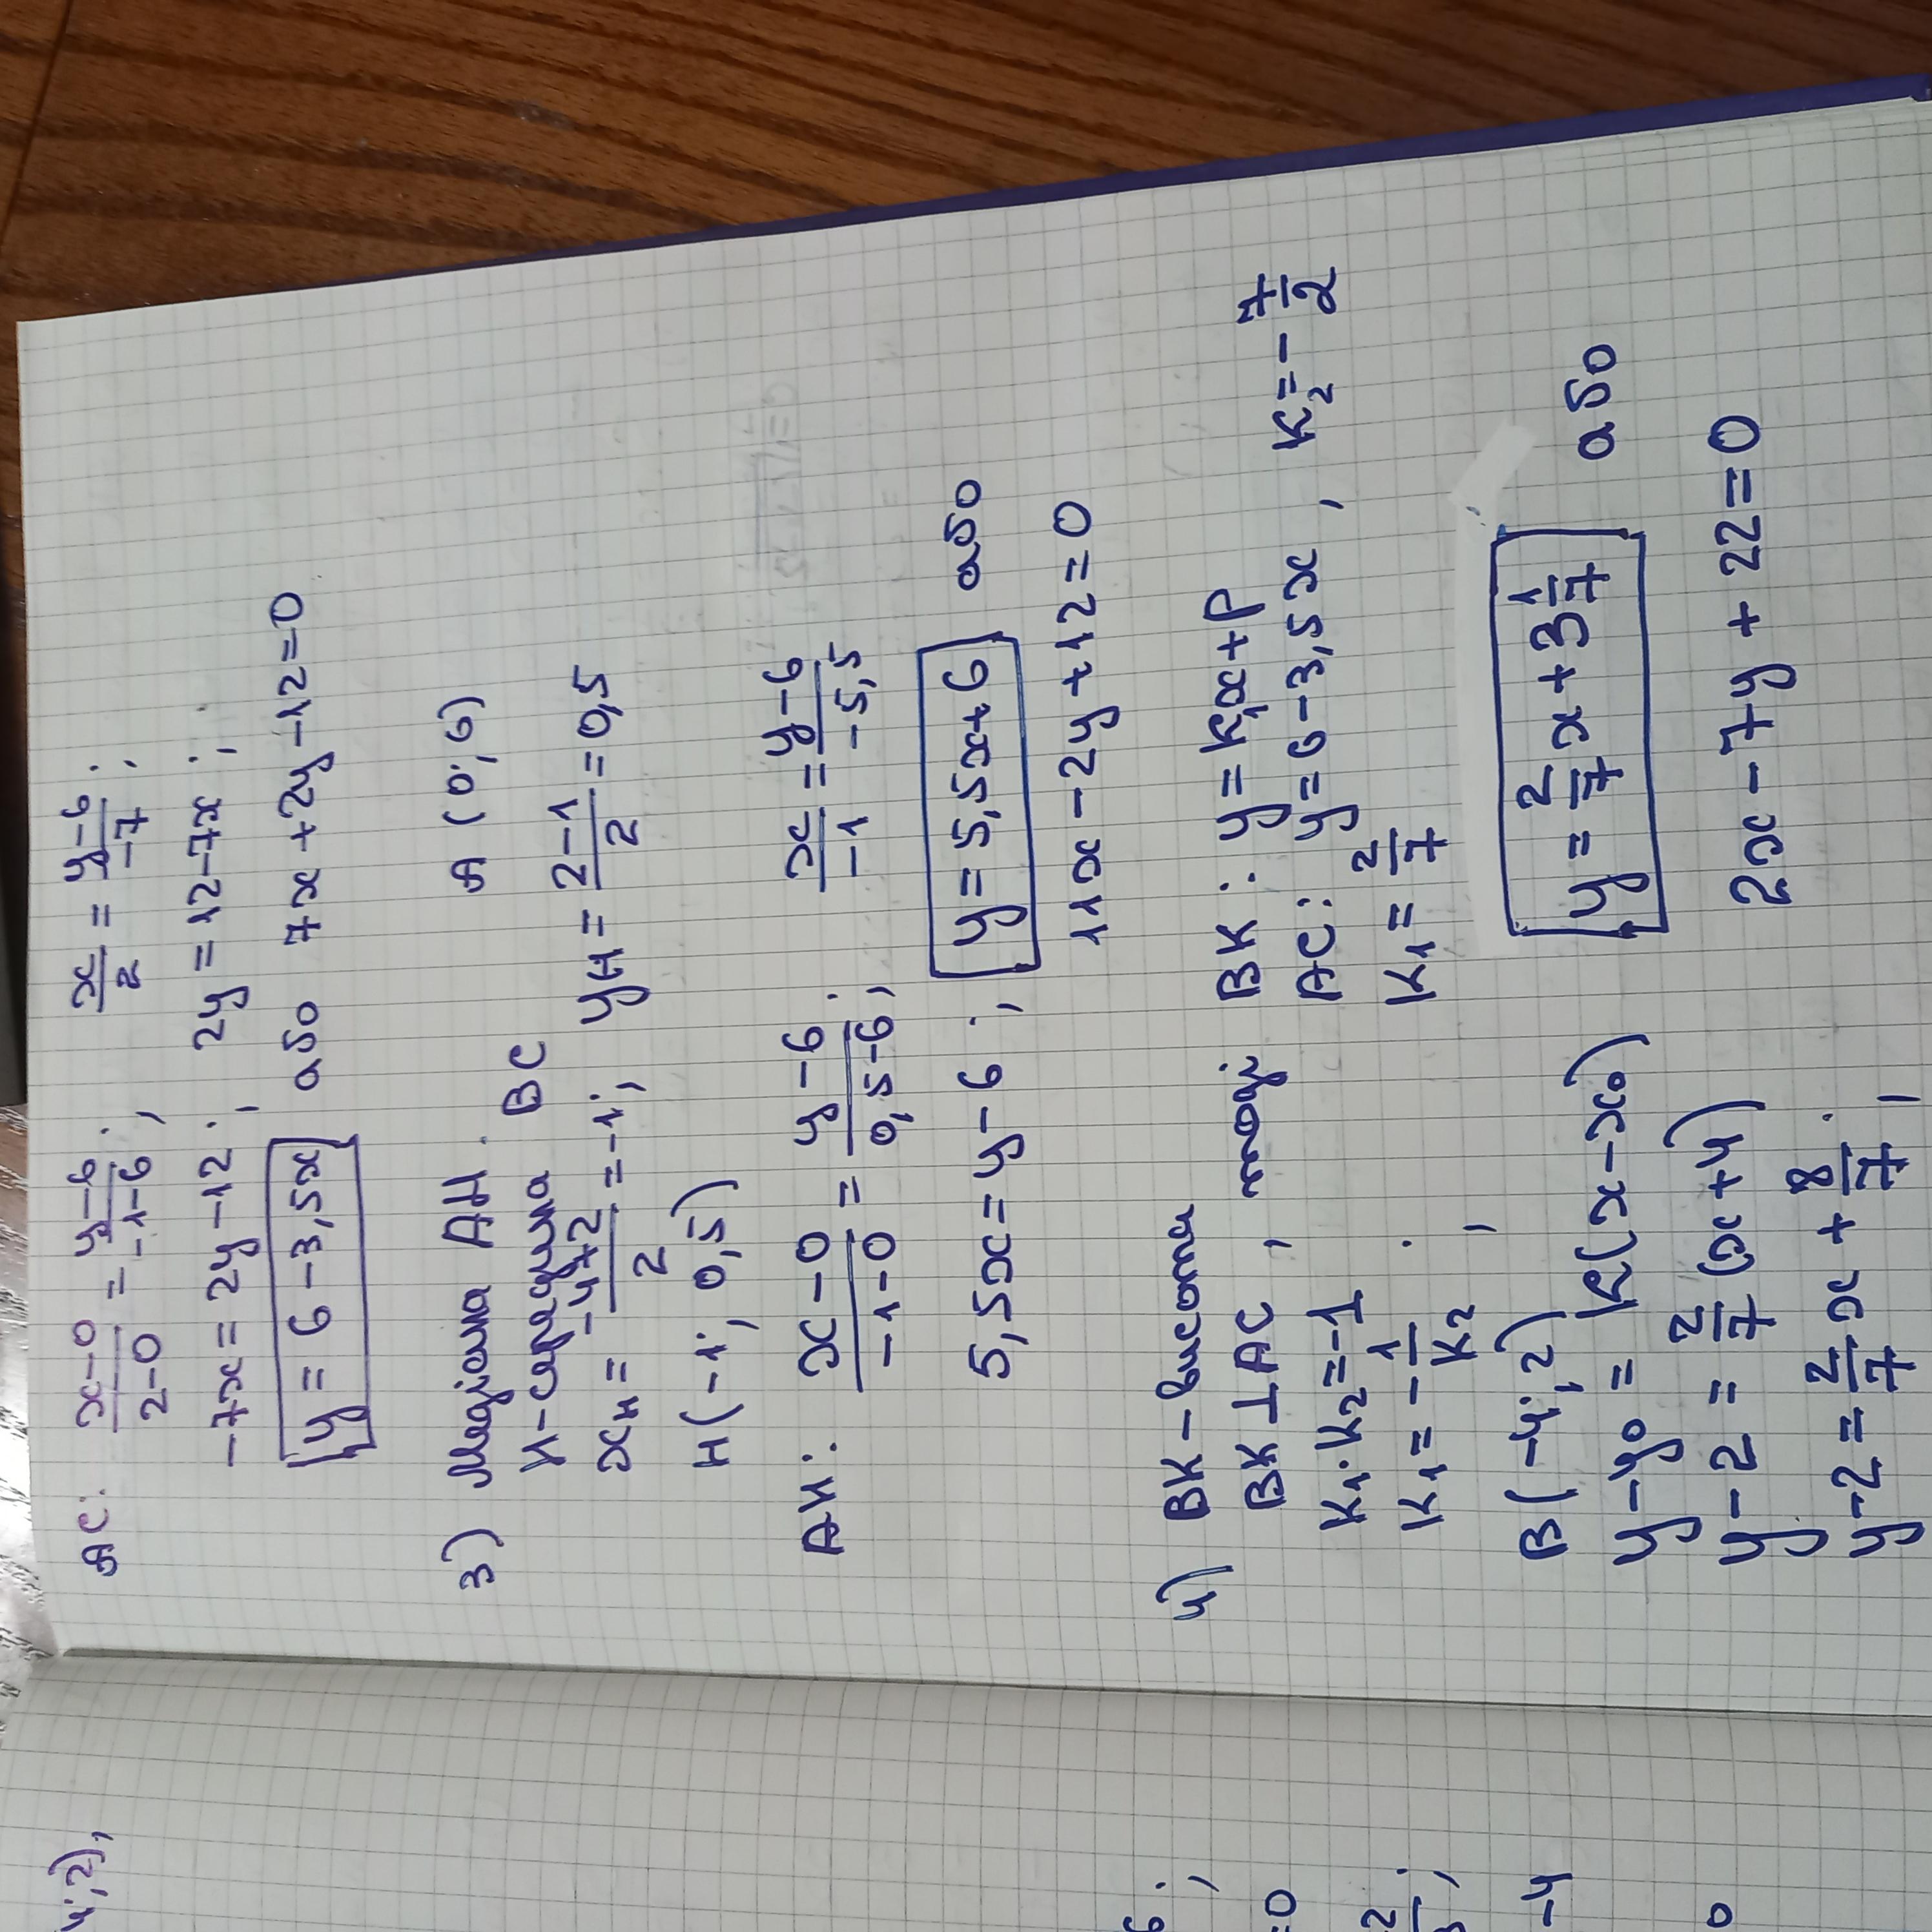 AC: x-0/2-0 = y-6/-1-6; x/2 = y-6/-7;
-7x = 2y-12; 2y = 12-7x;
y = 6-3,5x або 7x+2y-12=0
3) Медіана AH. A(0;6)
H-середина BC
xH = -4+2/2 = -1; yH = 2-1/2 = 0,5
H(-1; 0,5)
AH: x-0/-1-0 = y-6/0,5-6; x/-1 = y-6/-5,5
5,5x = y-6; y = 5,5x+6 або
11x-2y+12=0
4) BK-висота BK: y = K₁x+p
BK⊥AC, тоді AC: y=6-3,5x, K₂=-7/2
K₁·K₂=-1 K₁=2/7
K₁=-1/K₂;
B(-4;2)
y-y₀ = k(x-x₀) y = 2/7x+3 1/7 або
y-2 = 2/7(x+4)
y-2 = 2/7x + 8/7; 2x-7y+22=0
4;2),
6;
=0
2
-4
0